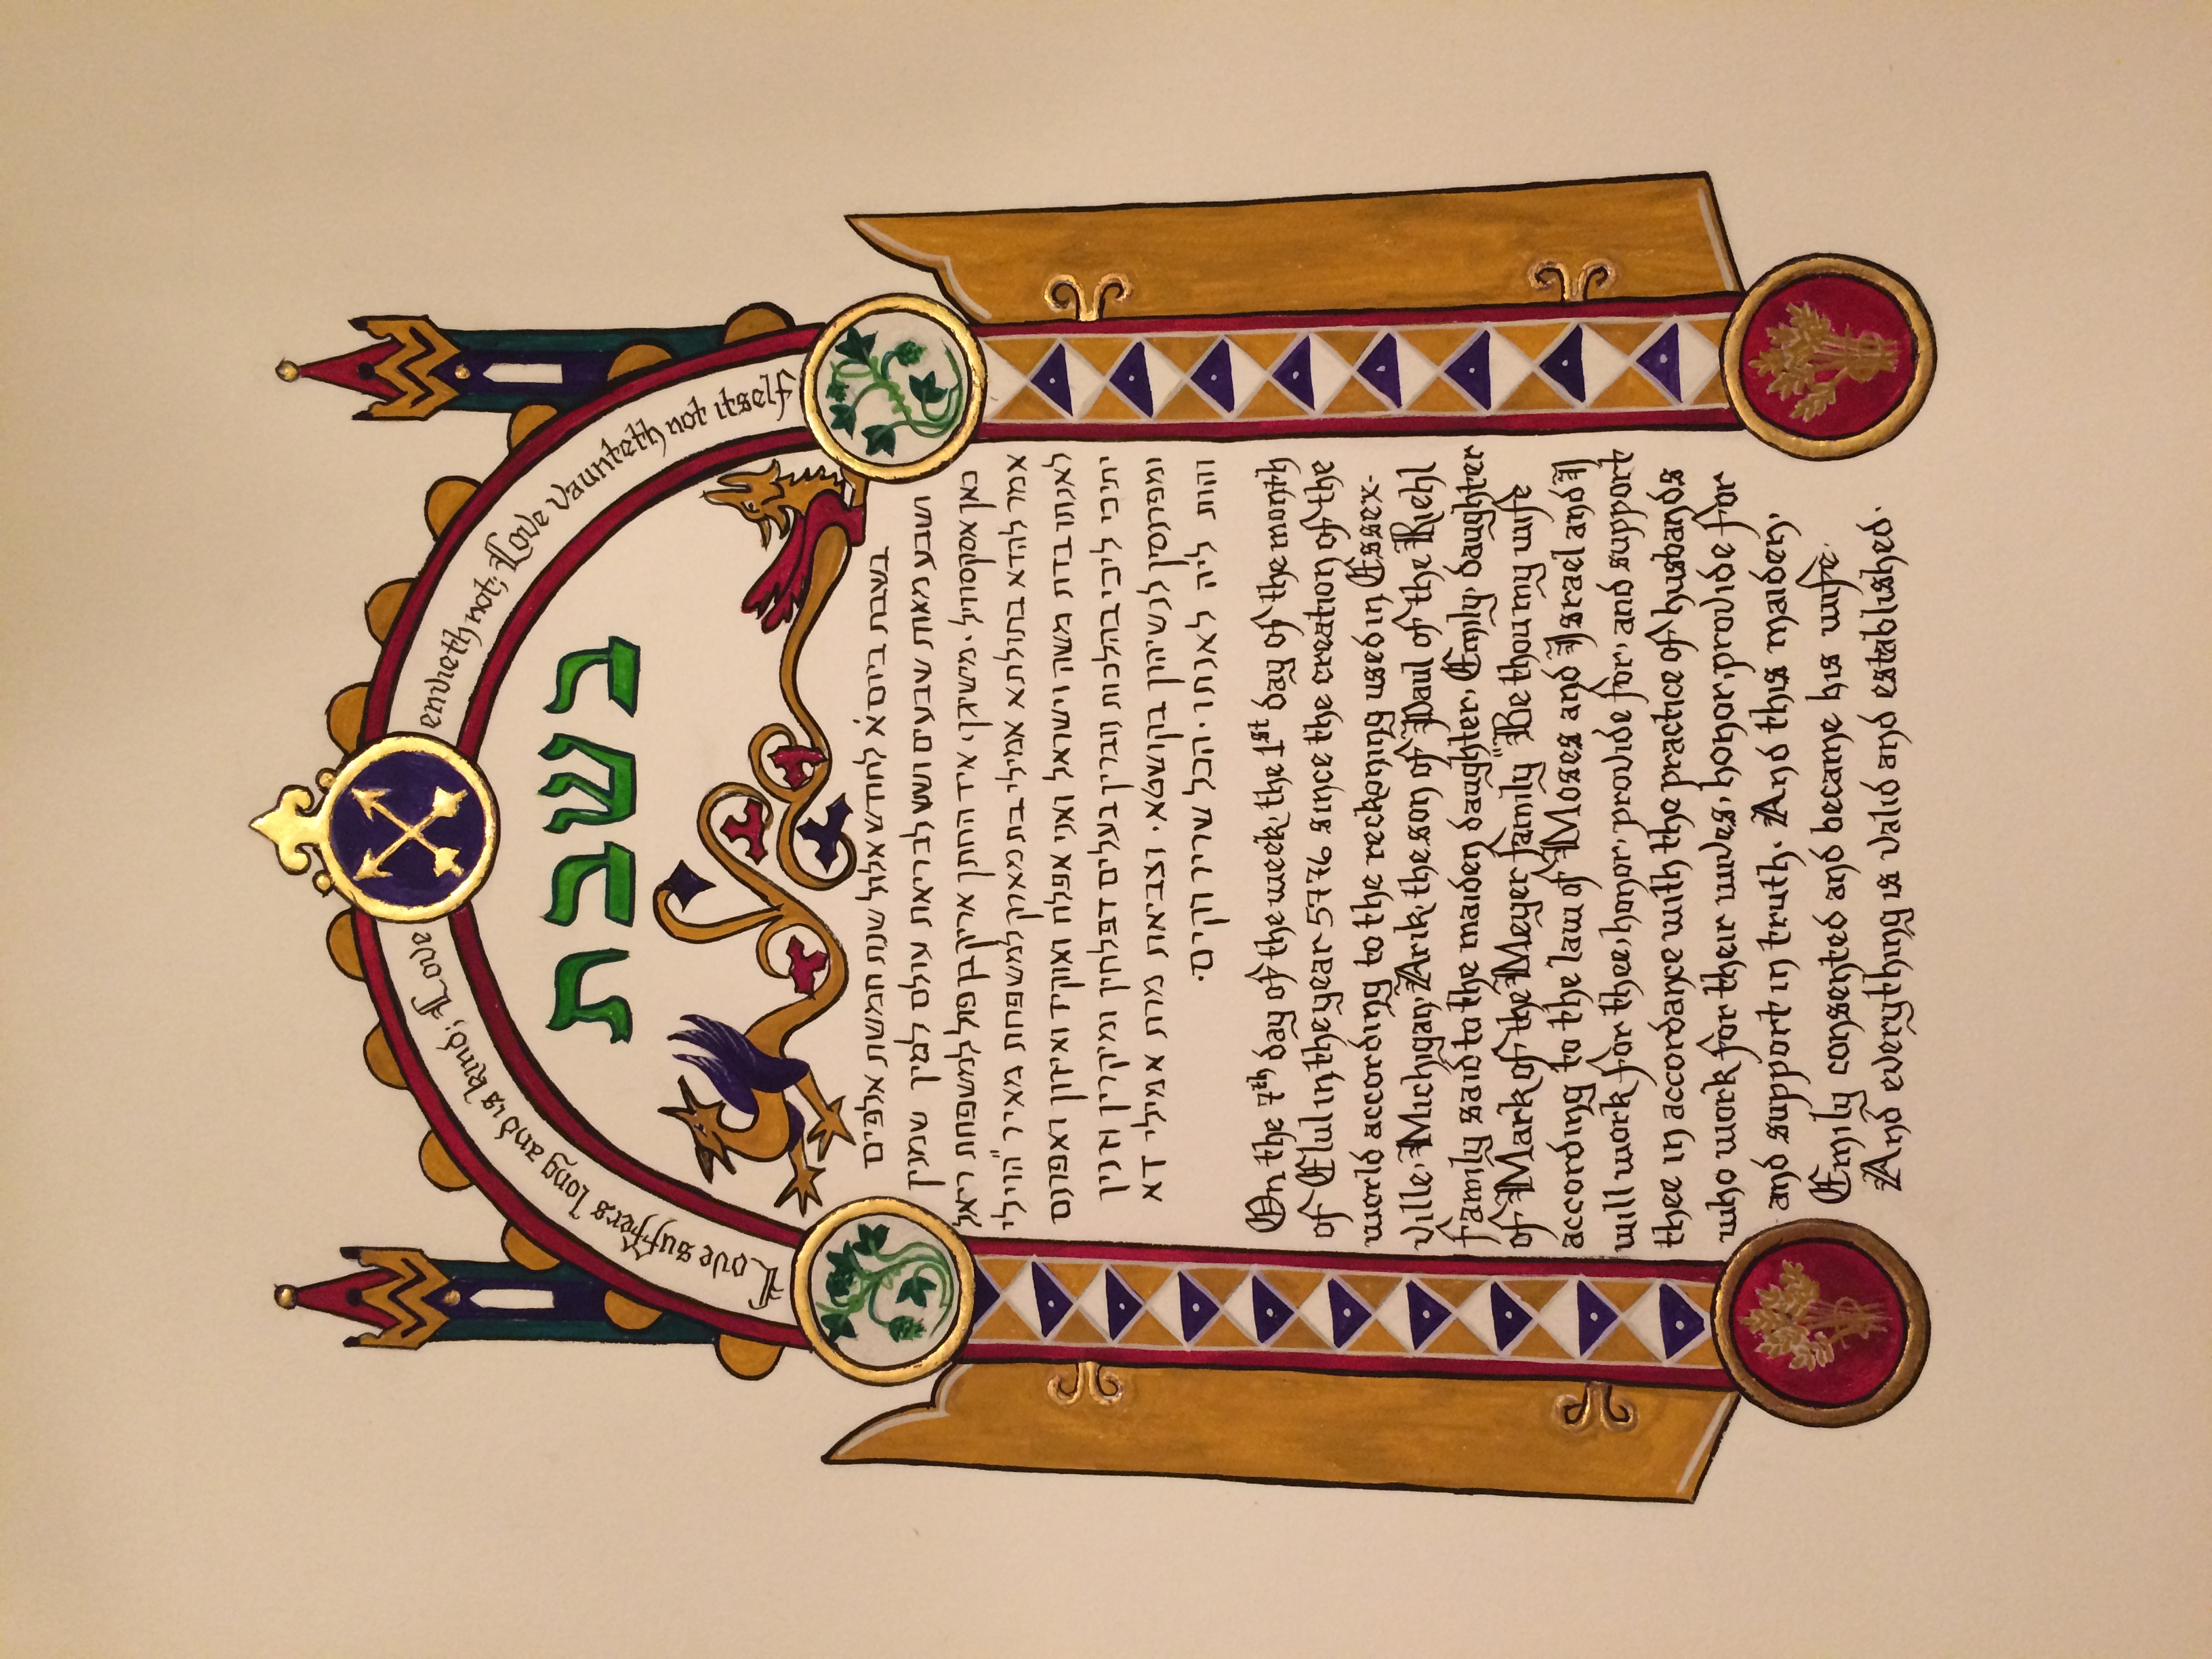 Love suffers long and is kind; Love envieth not; Love vaunteth not itself
בשבת
בשבת ביום א' לחודש אלול שנת חמשת אלפים
ושבע מאות שבעים ושש לבריאת עולם למנין שמנין
כאן אסיקסוויל, מישיגן, איך החתן אריק בן פול למשפחת ריאל
אמר להדא בתולתא אמילי בת מאריק למשפחת מאיר "הוילי
לאנתו כדת משה וישראל ואני אפלח ואוקיר ואיזון ואפרנס
יתיכי ליכי כהלכות גוברין בעלים דפלחין ומוקרין וזנין
ומפרנסין לנשיהון בקושטא. וצביאת מרת אמילי דא
והות ליה לאנתו. והכל שריר וקים.
On the 7th day of the week, the 1st day of the month
of Elul in the year 5776 since the creation of the
world according to the reckoning used in Essex-
ville, Michigan, Arik, the son of Paul of the Riehl
family said to the maiden daughter, Emily, daughter
of Mark of the Meyer family "Be thou my wife
according to the law of Moses and Israel and I
will work for thee, honor, provide for, and support
thee in accordance with the practice of husbands
who work for their wives, honor, provide for
and support in truth. And this maiden,
Emily consented and became his wife.
And everything is valid and established.